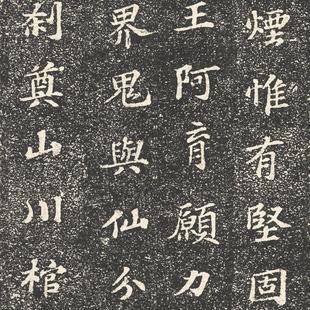 煙惟有堅固
王阿育願力
界鬼與仙分
刹奠山川棺